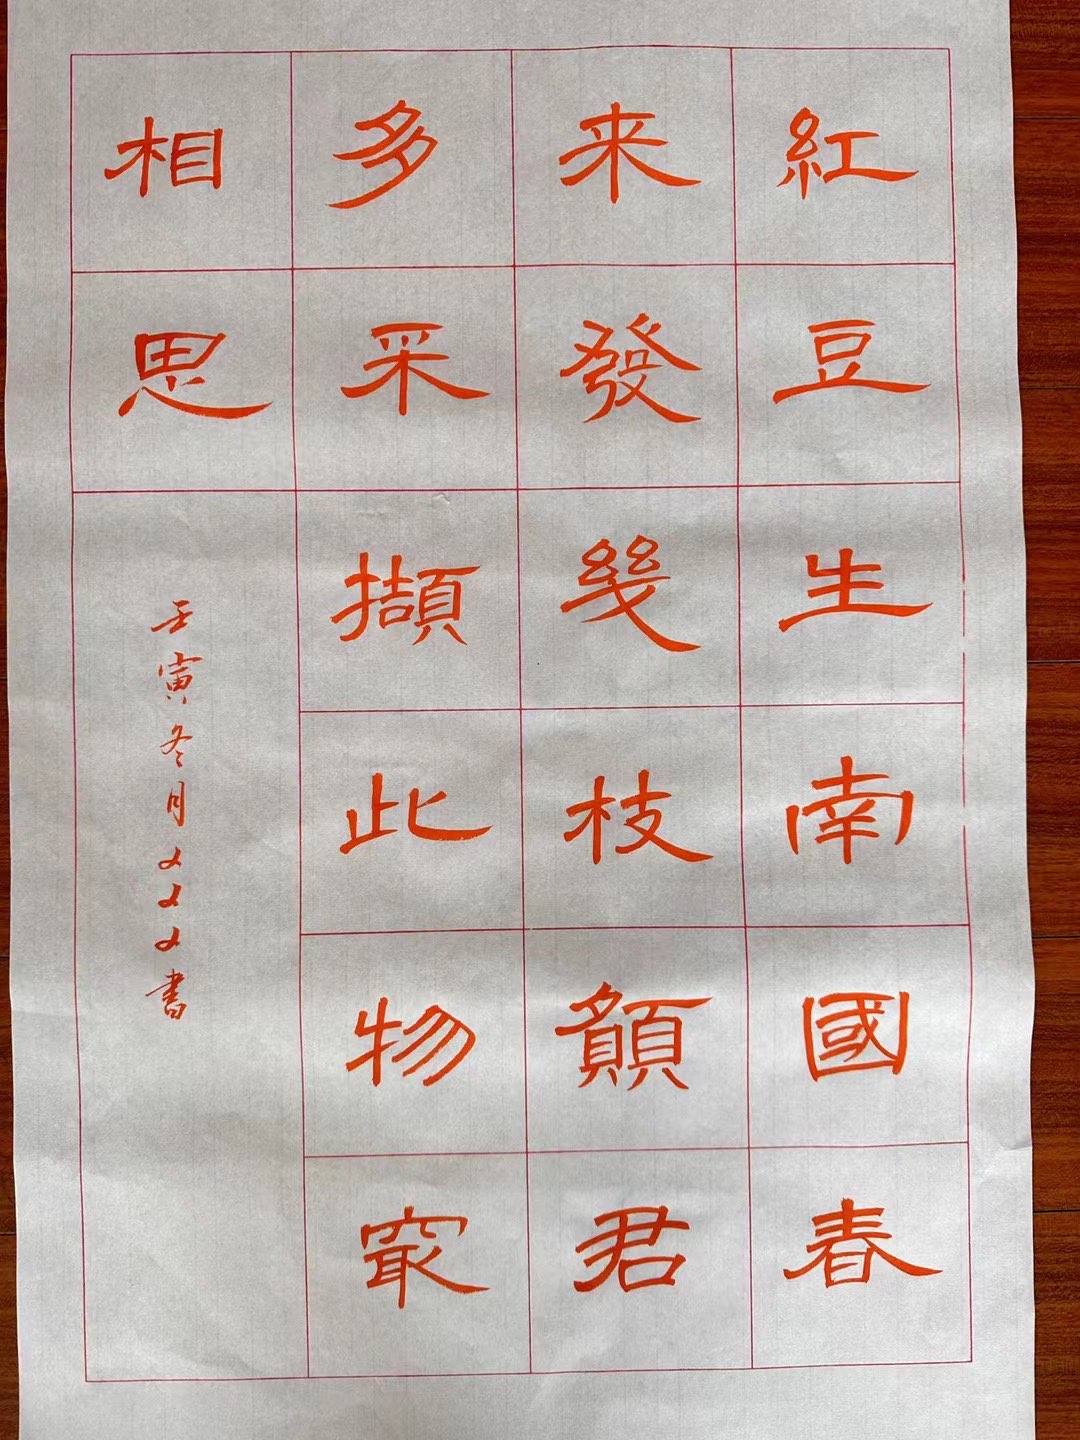 紅豆生南國春
来發幾枝願君
多采擷此物㝡
相思
壬寅冬月書